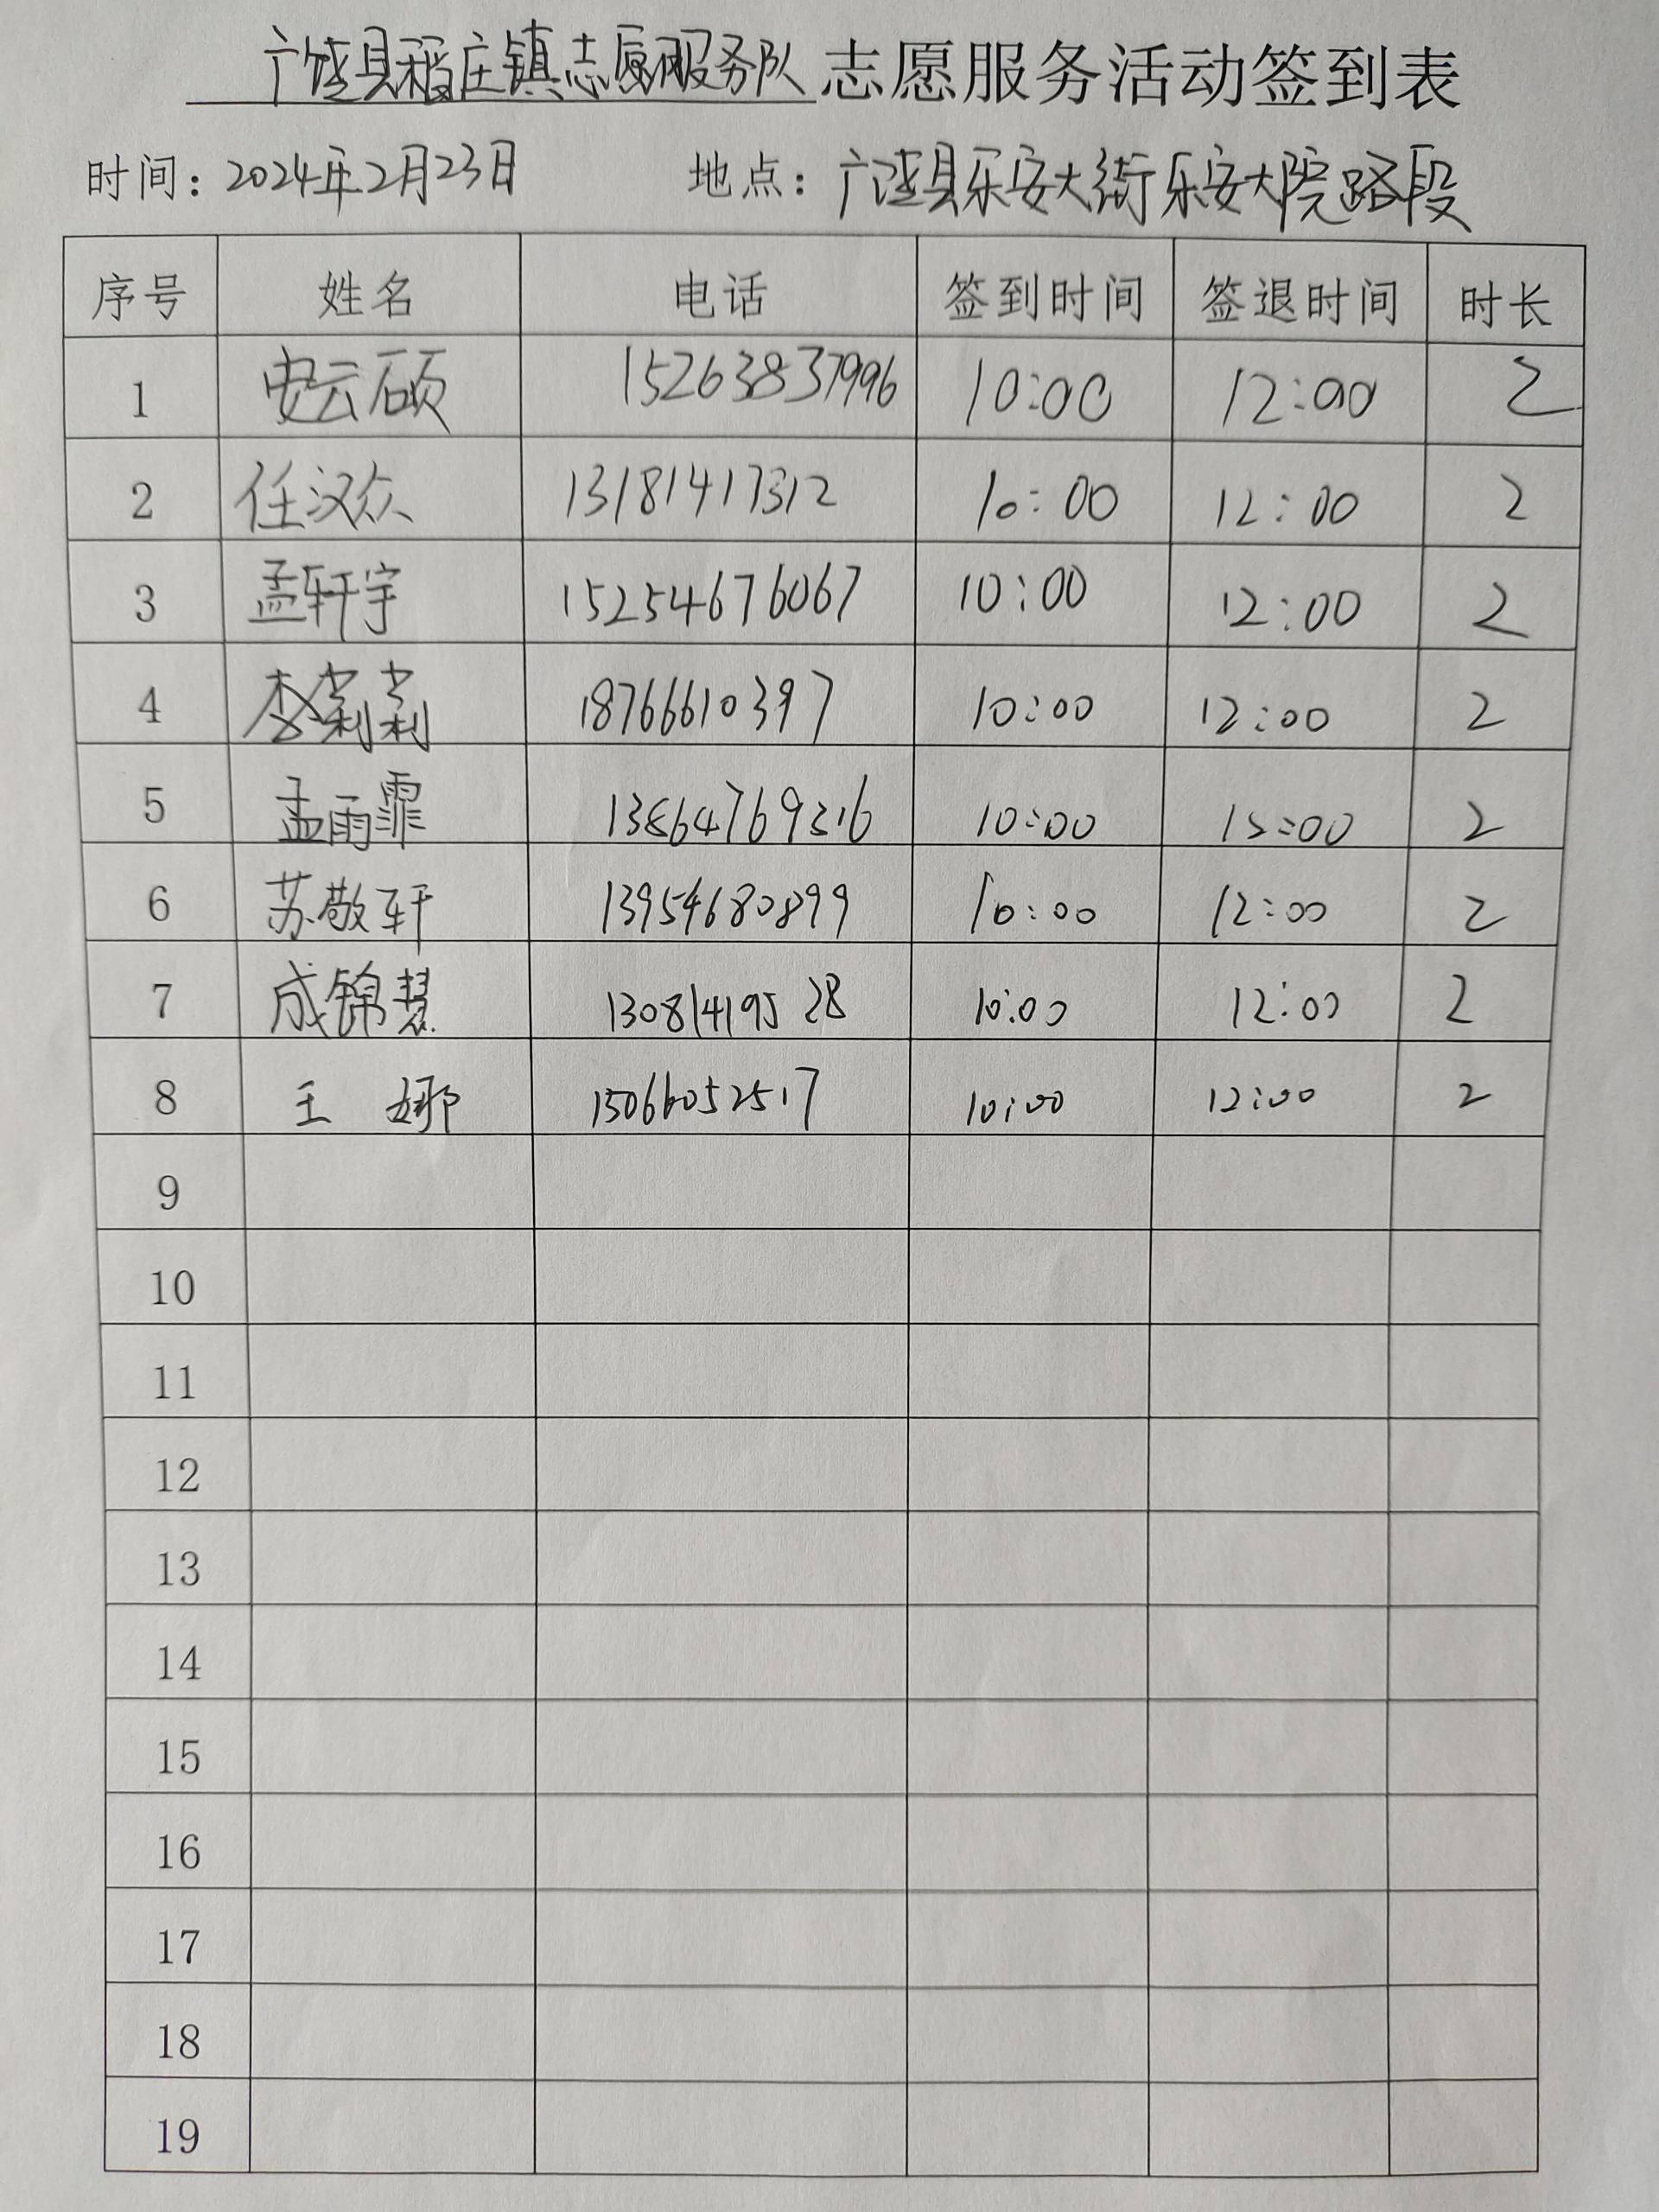 广饶县稻庄镇志愿服务队 志愿服务活动签到表
时间：2024年2月23日 地点：广饶县乐安大街乐安大院路段
序号 姓名 电话 签到时间 签退时间 时长
1 云硕 15263837996 10:00 12:00 2
2 任汉众 13181417312 10:00 12:00 2
3 孟轩宇 15254676067 10:00 12:00 2
4 李莉莉 18766610397 10:00 12:00 2
5 孟雨霏 13864769316 10:00 12:00 2
6 苏敬轩 13954680899 10:00 12:00 2
7 成锦慧 13081419528 10:00 12:00 2
8 王娜 15066052517 10:00 12:00 2
9
10
11
12
13
14
15
16
17
18
19